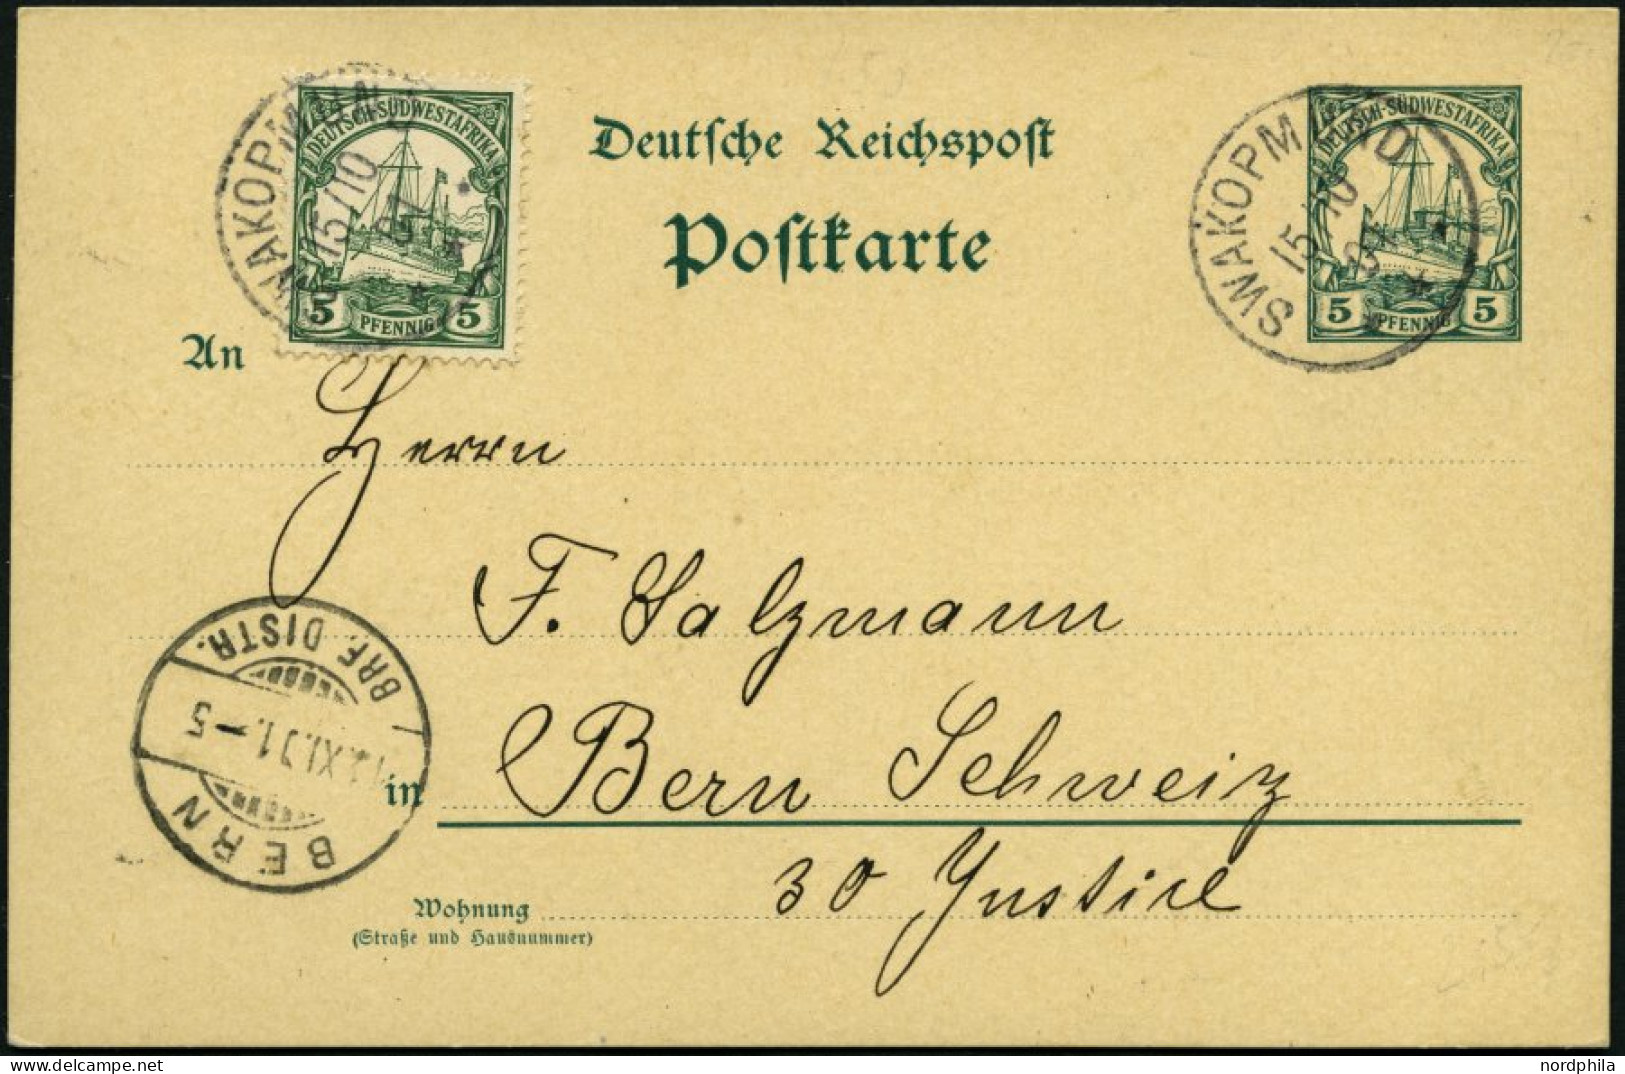 DEUTSCH-SÜDWESTAFRIKA
5 PFENNIG 5
SWAKOPMUND
15/10
01
Deutsche Reichspost
Postkarte
DEUTSCH-SÜDWESTAFRIKA
5 PFENNIG 5
SWAKOPMUND
15/10
01
An
Herrn
F. Salzmann
in Bern Schweiz
30 Justice
BERN
XI.01.-5
BRF. DISTR.
Wohnung
(Straße und Hausnummer)
nordphila